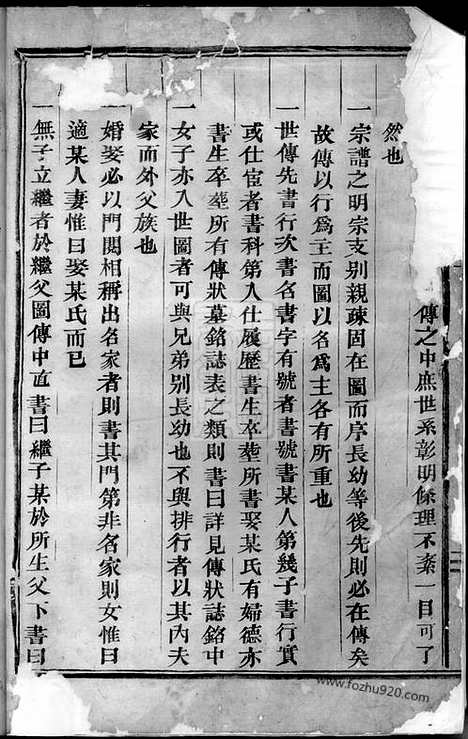 傳之中庶世系彰明條理不紊一目可了
然也
一宗譜之明宗支别親疎固在圖而序長幼等後先則必在傳矣
故傳以行為主而圖以名為主各有所重也
一世傳先書行次書名書字有號者書號書某人第幾子書行實
或仕宦者書科第入仕履歷書生卒塟所書娶某氏有婦德亦
書生卒塟所有傳狀墓銘誌表之類則書曰詳見傳狀誌銘中
一女子亦入世圖者可與兄弟别長幼也不與排行者以其内夫
家而外父族也
一婚娶必以門閥相稱出名家者則書其門第非名家則女惟曰
適某人妻惟曰娶某氏而已
一無子立繼者於繼父圖傳中直書曰繼子某於所生父下書曰
www.fozhu920.com